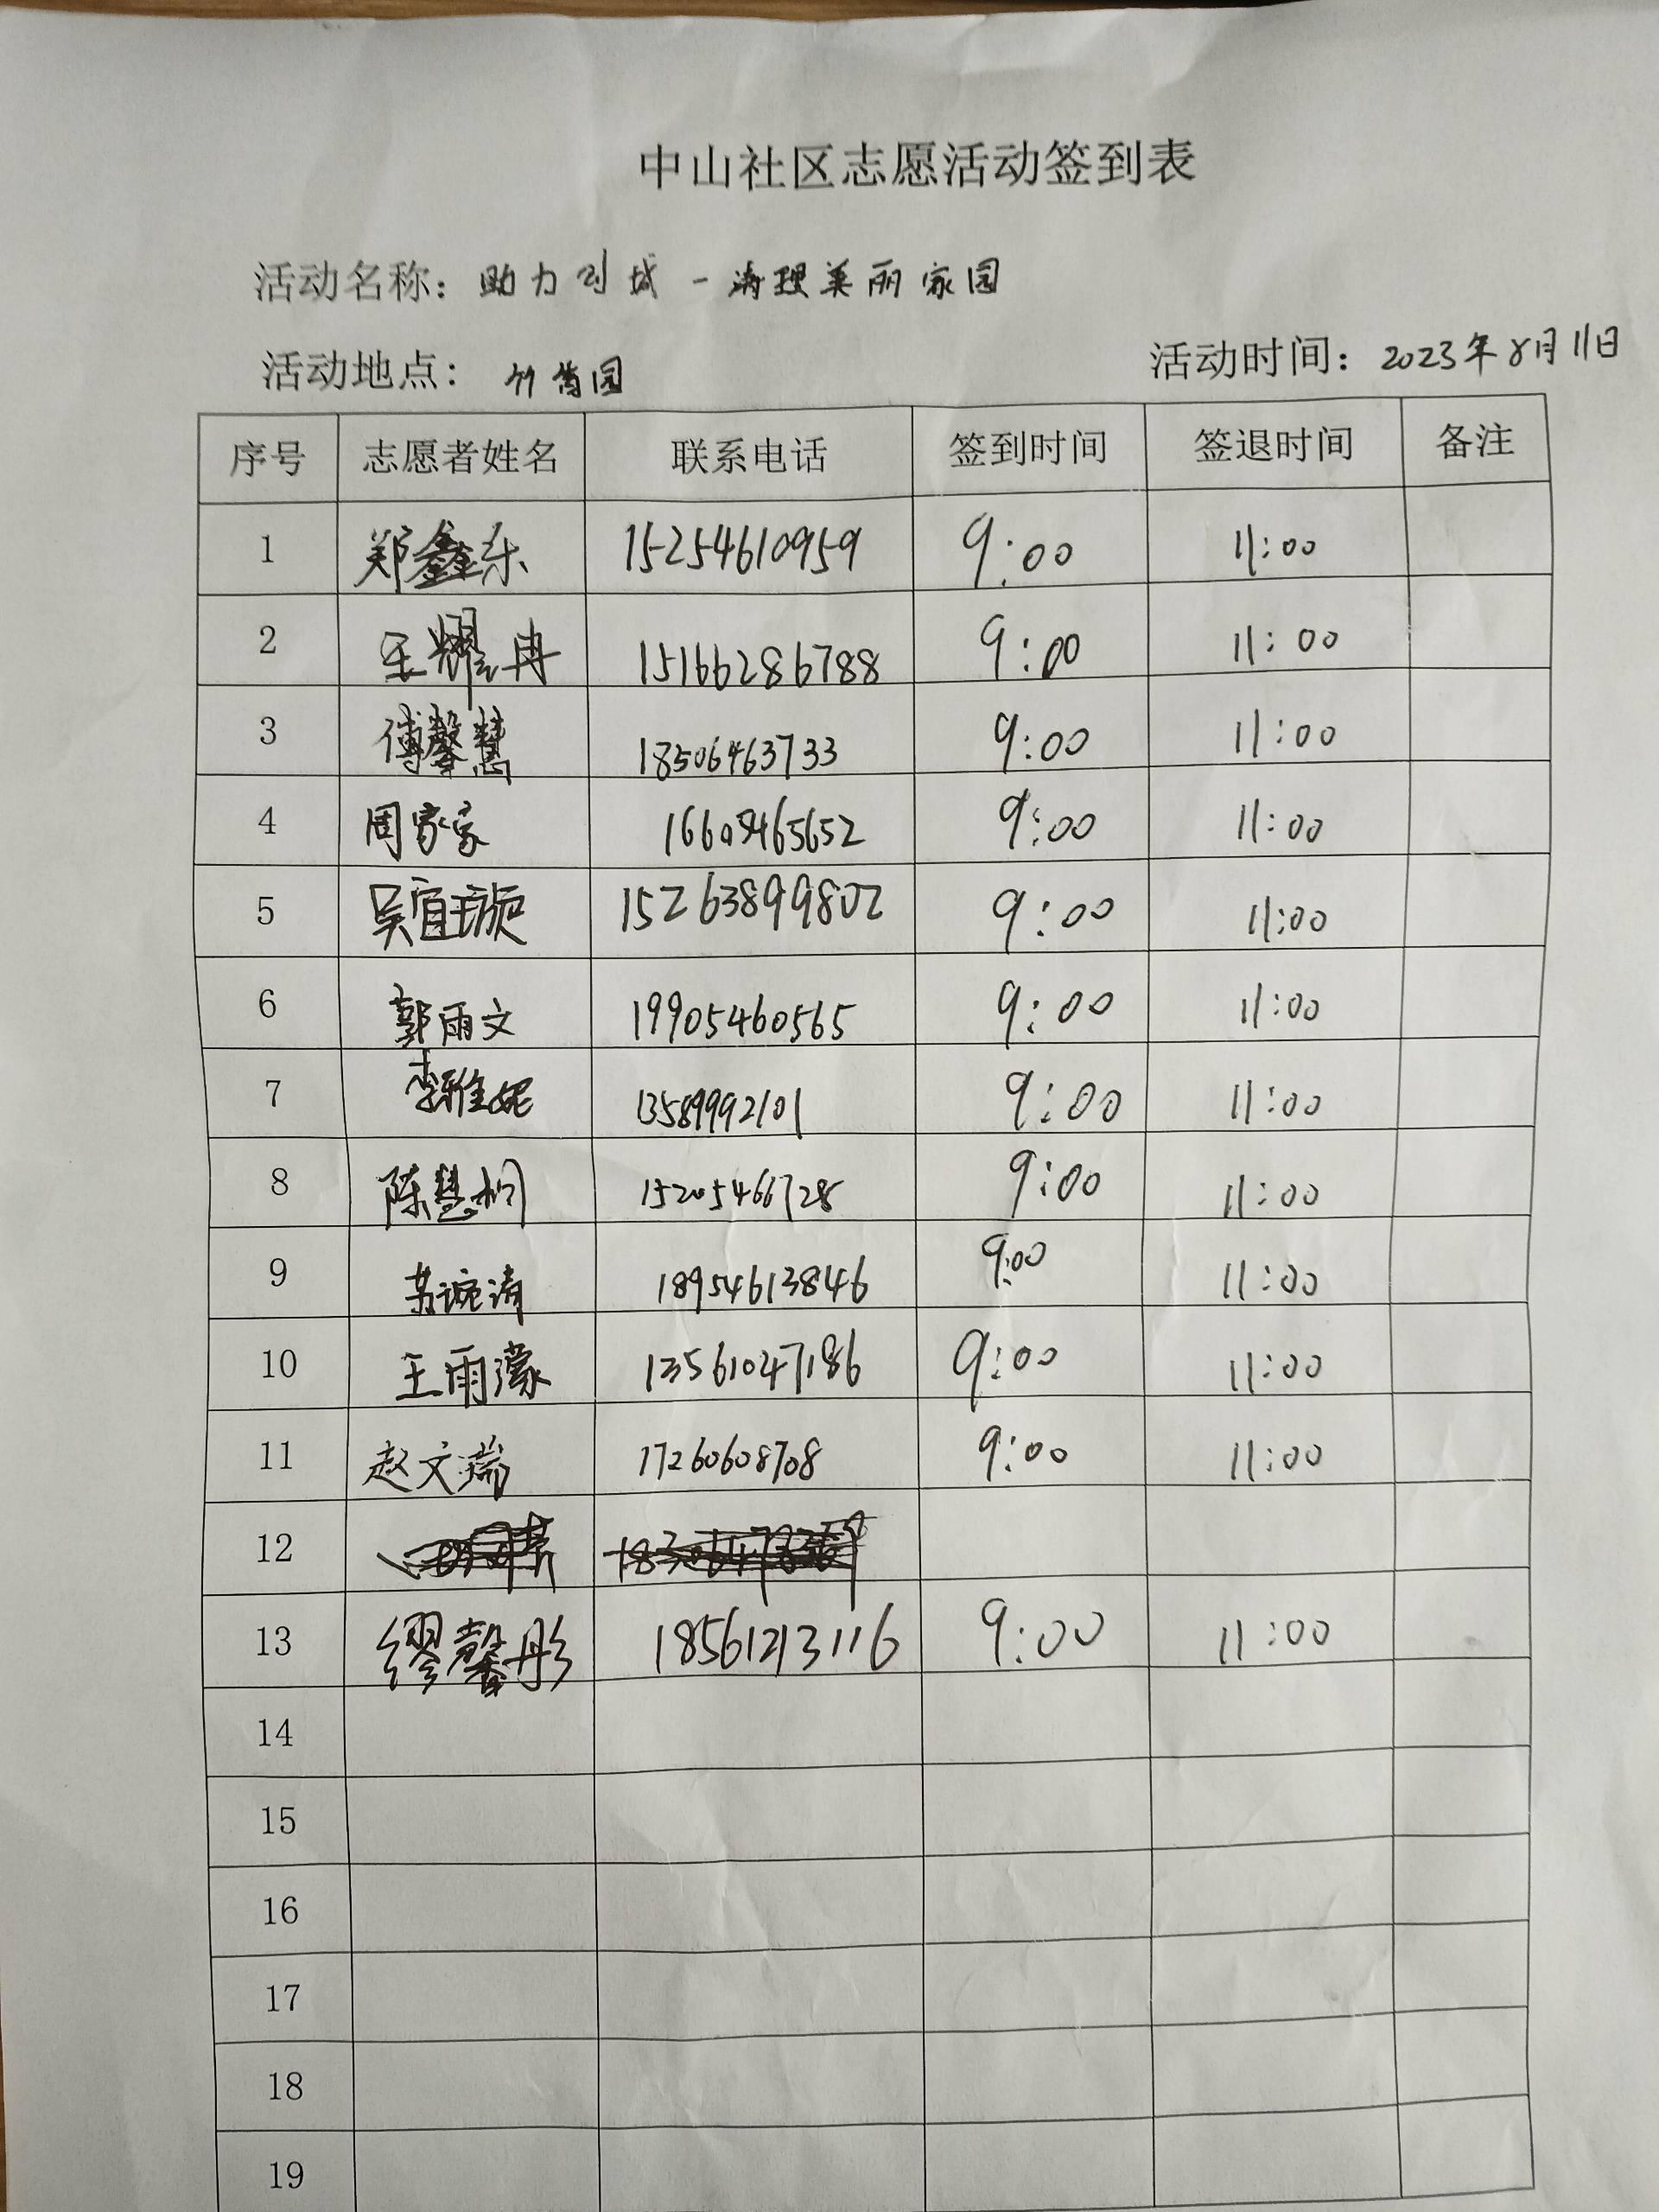 中山社区志愿活动签到表
活动名称: 助力创城-清理美丽家园
活动地点: 竹苑园 活动时间: 2023年8月11日
序号 志愿者姓名 联系电话 签到时间 签退时间 备注
1 郑鑫东 15254610959 9:00 11:00
2 王耀冉 15166286788 9:00 11:00
3 傅馨慧 18506463733 9:00 11:00
4 周家家 16605465652 9:00 11:00
5 吴宜璇 15263899802 9:00 11:00
6 郭雨文 19905460565 9:00 11:00
7 李雅妮 13589992101 9:00 11:00
8 陈慧桐 15205466728 9:00 11:00
9 苏婉清 18954613846 9:00 11:00
10 王雨濛 13561047186 9:00 11:00
11 赵文瑞 17260608708 9:00 11:00
12
13 缪馨彤 18561213116 9:00 11:00
14
15
16
17
18
19